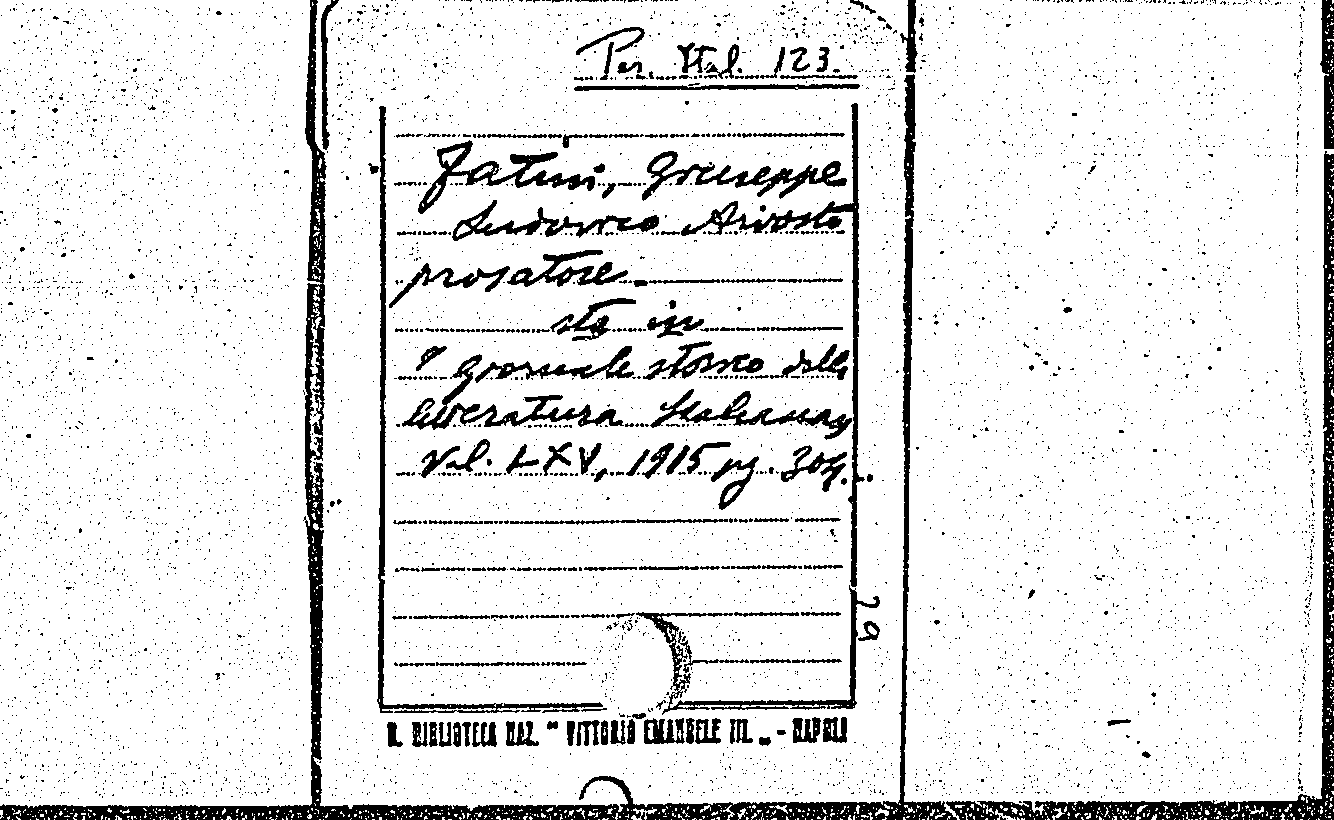 Per. Ital. 123.
Fatini, Giuseppe
Ludovico Ariosto
prosatore.
sta in
Giornale storico della
letteratura Italiana,
Vol. LXV, 1915 pg.
29
R. BIBLIOTECA NAZ. " VITTORIO EMANUELE III. „ - NAPOLI